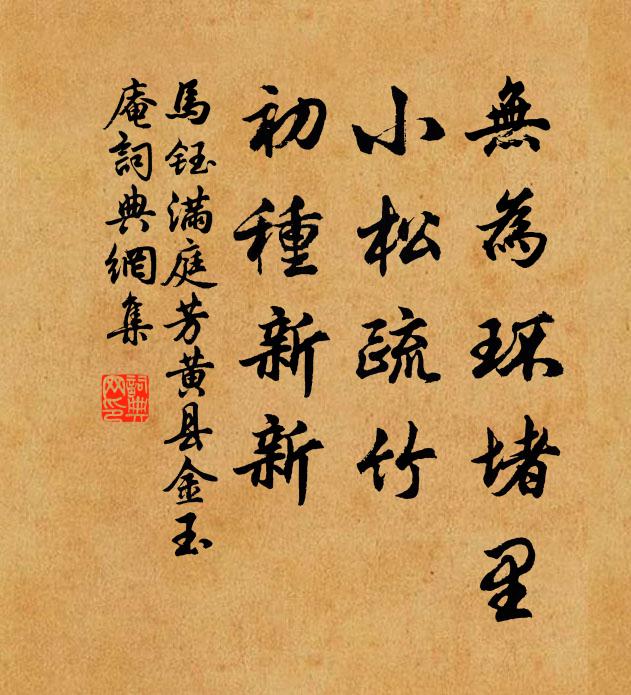 無為环堵里
小松疏竹
初種新新
馬鈺满庭芳黄县金玉
庵詞典網集
詞典
网印